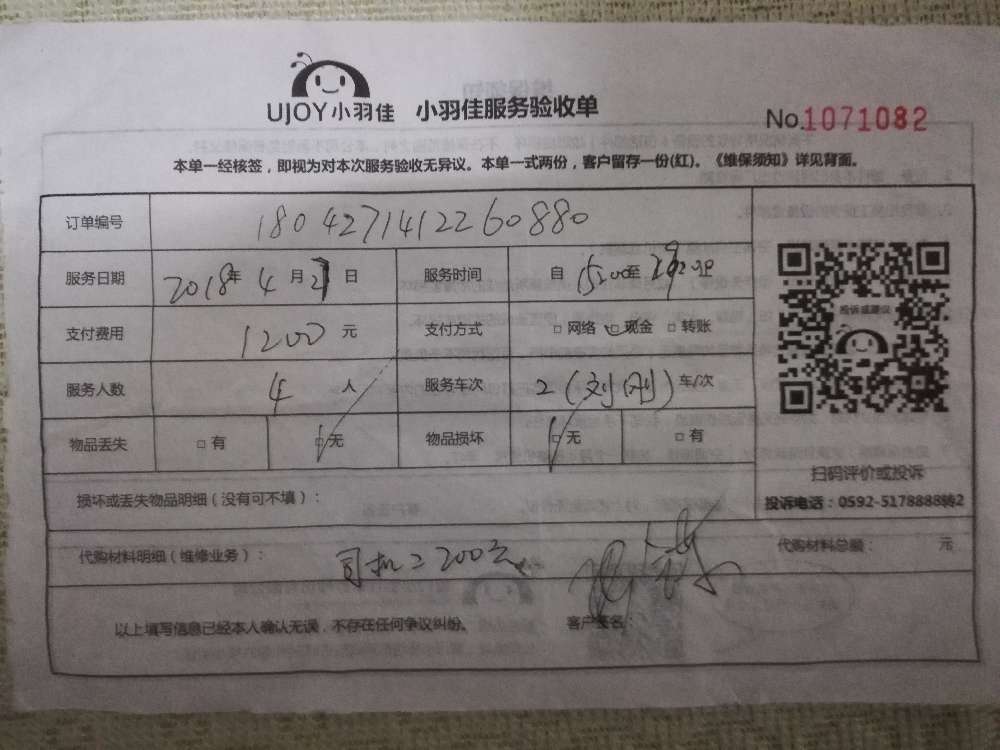 UJOY小羽佳 小羽佳服务验收单
No.1071082
本单一经核签，即视为对本次服务验收无异议。本单一式两份，客户留存一份(红)。《维保须知》详见背面。
订单编号 180427141226088​0
服务日期 2018年 4 月 27 日 服务时间 自 15:00至
支付费用 1200 元 支付方式 □ 网络 □ 现金 □ 转账
服务人数 4 人 服务车次 2（刘刚）车/次
物品丢失 □ 有 □ 无 物品损坏 □ 无 □ 有
投诉或建议
扫码评价或投诉
投诉电话：0592-5178888转2
损坏或丢失物品明细（没有可不填）：
代购材料明细（维修业务）： 司机 200元 代购材料总额： 元
以上填写信息已经本人确认无误，不存在任何争议纠纷。 客户签名：